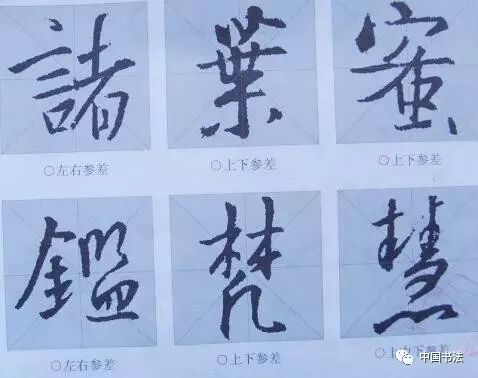 諸 葉 蜜
○左右参差 ○上下参差 ○上下参差
鑑 梵 慧
○左右参差 ○上下参差 ○上下参差
中国书法